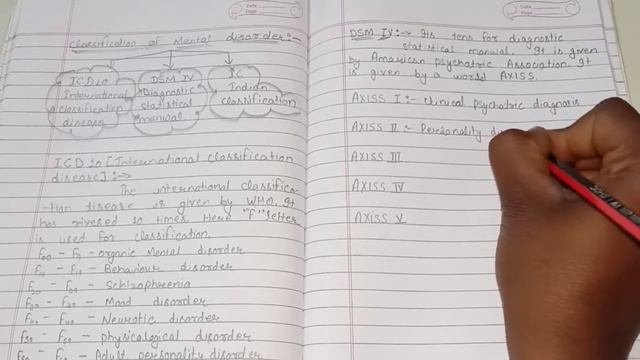 Date
Page
Classification of Mental disorder:-
ICD10
International
classification
disease
DSM IV
Diagnostic
statistical
manual.
IC
Indian
classification
ICD 10 [International classification
disease] :->
The international classifica-
tion disease is given by WHO. It
has rivesed 10 times. Here "F" letter
is used for classification.
- organic Mental disorder
- Behaviour disorder
- Schizophrenia
- Mood disorder
- Neurotic disorder
- physicalogical disorder
- Adult personality disorder
Date
Page
DSM IV :-> Its tens for diagnostic
statistical manual. It is given
by American psychatric Association. It
is given by a world AXISS.
AXISS I :- clinical psychatric diagnosis
AXISS II :- Personality
AXISS III
AXISS IV
AXISS V